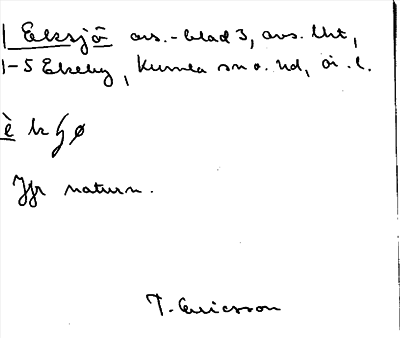 Eksjö avs.-blad 3, avs. Uht,
1-5 Ekeby, Kumla sn o. hd, ör. l.
Jfr naturn.
T. Ericsson